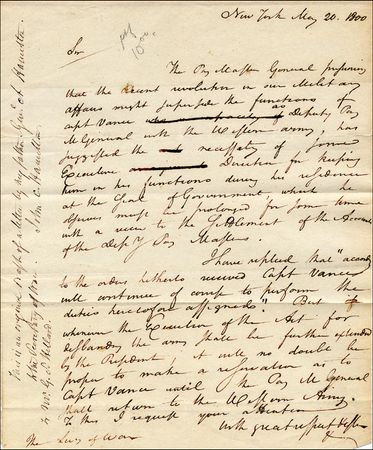 New York May 20. 1800
Sir
The Pay Master General presuming
that the recent revolution in our Military
affairs might supersede the functions of
Capt Vance as Deputy Pay
M General with the Western army, has
suggested the necessity of some
Executive Direction for keeping
him in his functions during his residence
at the Seat of Government, which he
observes must be prolonged for some time
with a view to the Settlement of the Accounts
of the Depy Pay Masters.
I have replied that "according
to the orders hitherto received Capt Vance
will continue of course to perform the
duties heretofore assigned." But if
whenever the Execution of the Act for
disbanding the army shall be further extended
by the President, it will no doubt be
proper to make a reservation as to
Capt Vance until the Pay M General
shall return to the Western Army.
To this I request your attention
With great respect
The Secy of War
This is an original draft of a letter by my father Genl A Hamilton
to the Secretary of War
John C Hamilton
to Mr